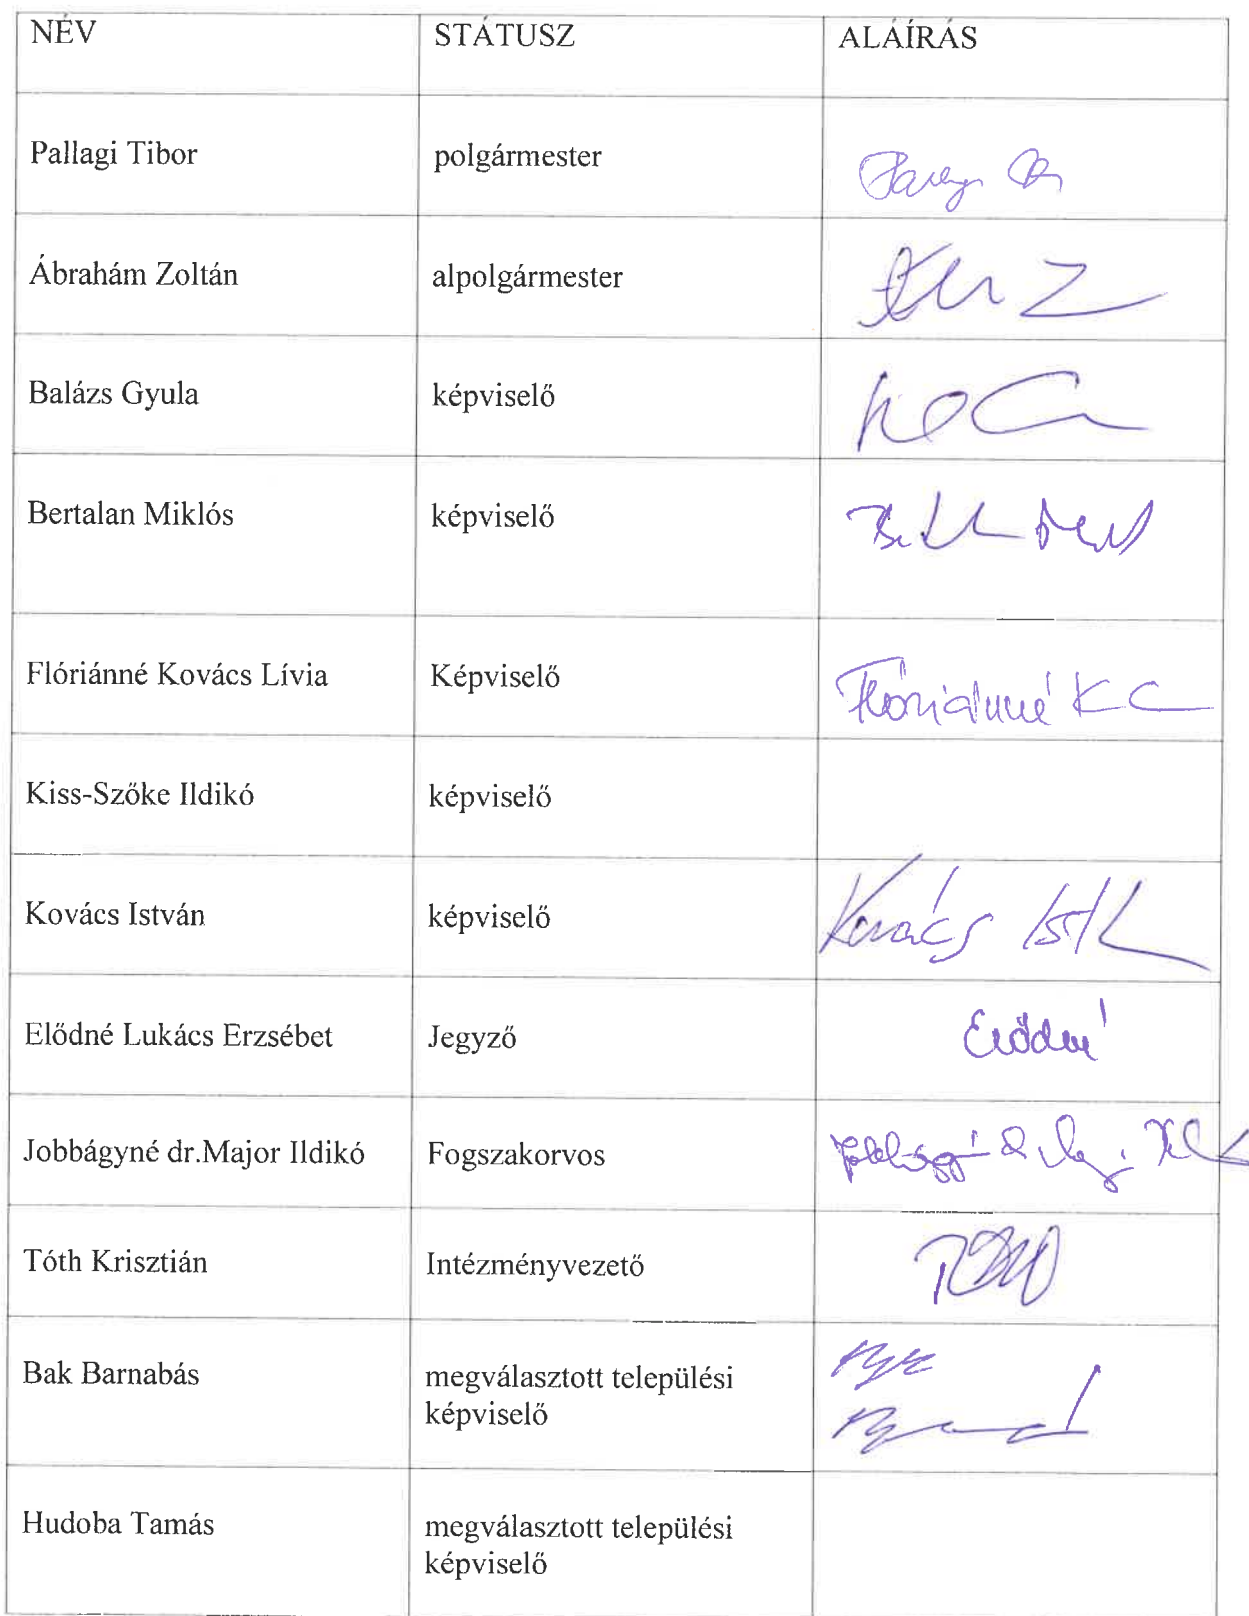 NÉV STÁTUSZ ALÁÍRÁS
Pallagi Tibor polgármester
Ábrahám Zoltán alpolgármester
Balázs Gyula képviselő
Bertalan Miklós képviselő
Flóriánné Kovács Lívia Képviselő Flóriánné K L
Kiss-Szőke Ildikó képviselő
Kovács István képviselő Kovács István
Elődné Lukács Erzsébet Jegyző Elődné
Jobbágyné dr.Major Ildikó Fogszakorvos
Tóth Krisztián Intézményvezető
Bak Barnabás megválasztott települési
képviselő
Hudoba Tamás megválasztott települési
képviselő